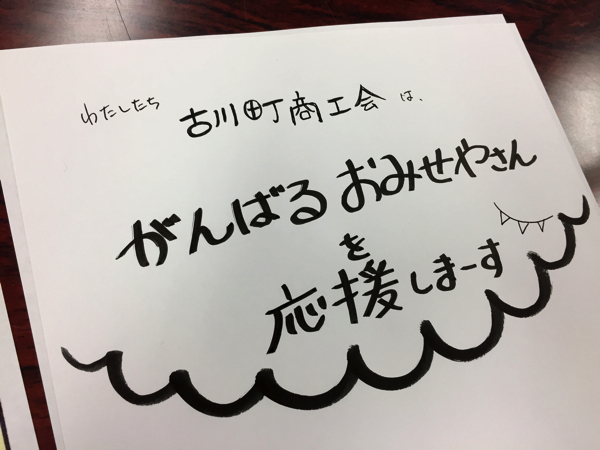 わたしたち 古川町商工会 は、
がんばる おみせやさん
を
応援しまーす